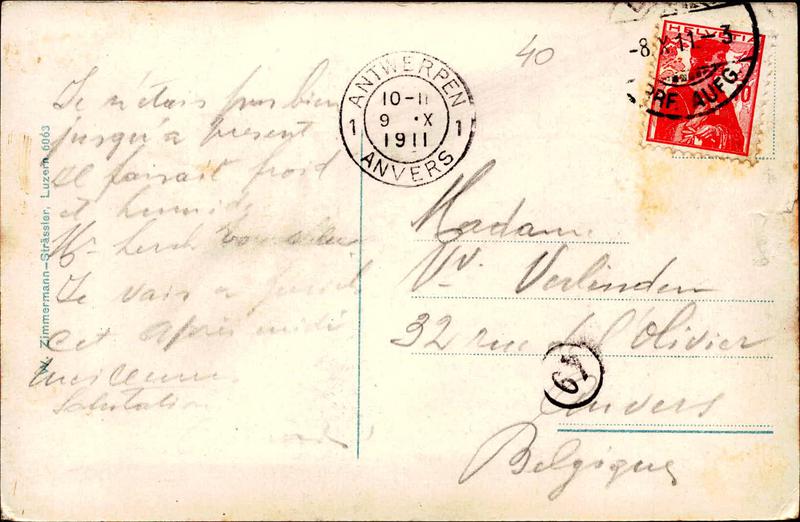 Je n'étais pas bien
jusqu'a present
il faisait froid
et humide
Je vais a
cet après midi
Salutation
W. Zimmermann-Strässler, Luzern 6063
ANTWERPEN
10-11
1 9 · X 1
1911
ANVERS
40
HELVETIA
-8.X.11-3
BRF. AUFG.
10
Madame
Vve Verlinden
32 rue de l'Olivier
67
Anvers
Belgique